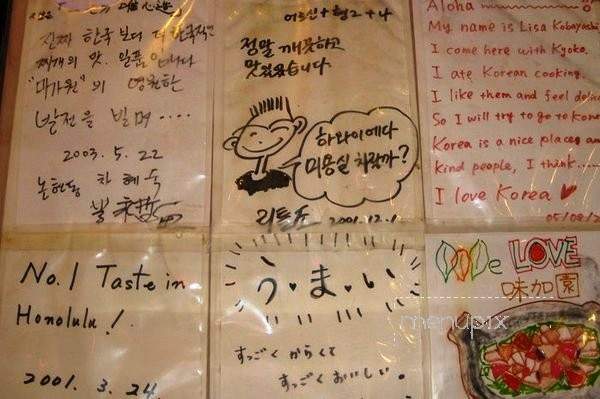 진짜 한국보다 더 한국적인
찌개의 맛. 일품입니다
"대가원"의 영원한
발전을 빌며....
2003. 5. 22
논현동 차혜숙
정말 깨끗하고
맛있었습니다
하와이에다
미용실 차릴까?
리틀조 2001. 12. 1
Aloha
My name is Lisa Kobayashi
I come here with Kyoko.
I ate Korean cooking.
I like them and feel
So I will try to go to
Korea is a nice place an
kind people, I think......
I love Korea ♥
No. 1 Taste in
Honolulu!
2001. 3. 24
う・ま・い
すっごく からくて
すっごく おいしい。
We LOVE
味加園
menupix